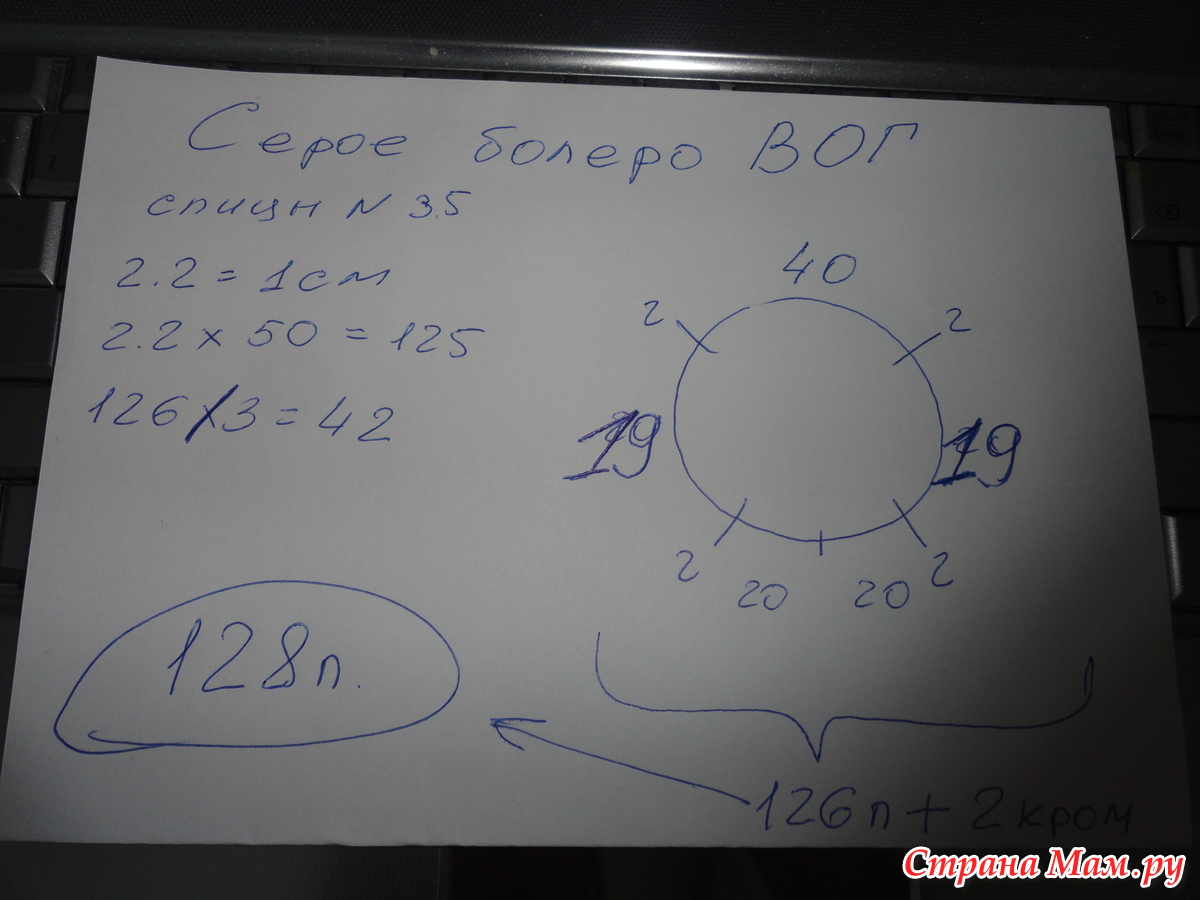 Серое болеро ВОГ
спицы N 3.5
2.2 = 1см
2.2 x 50 = 125
126 / 3 = 42
40
2 2
19 19
2 2
20 20
128п.
126п + 2кром
Страна Мам.ру